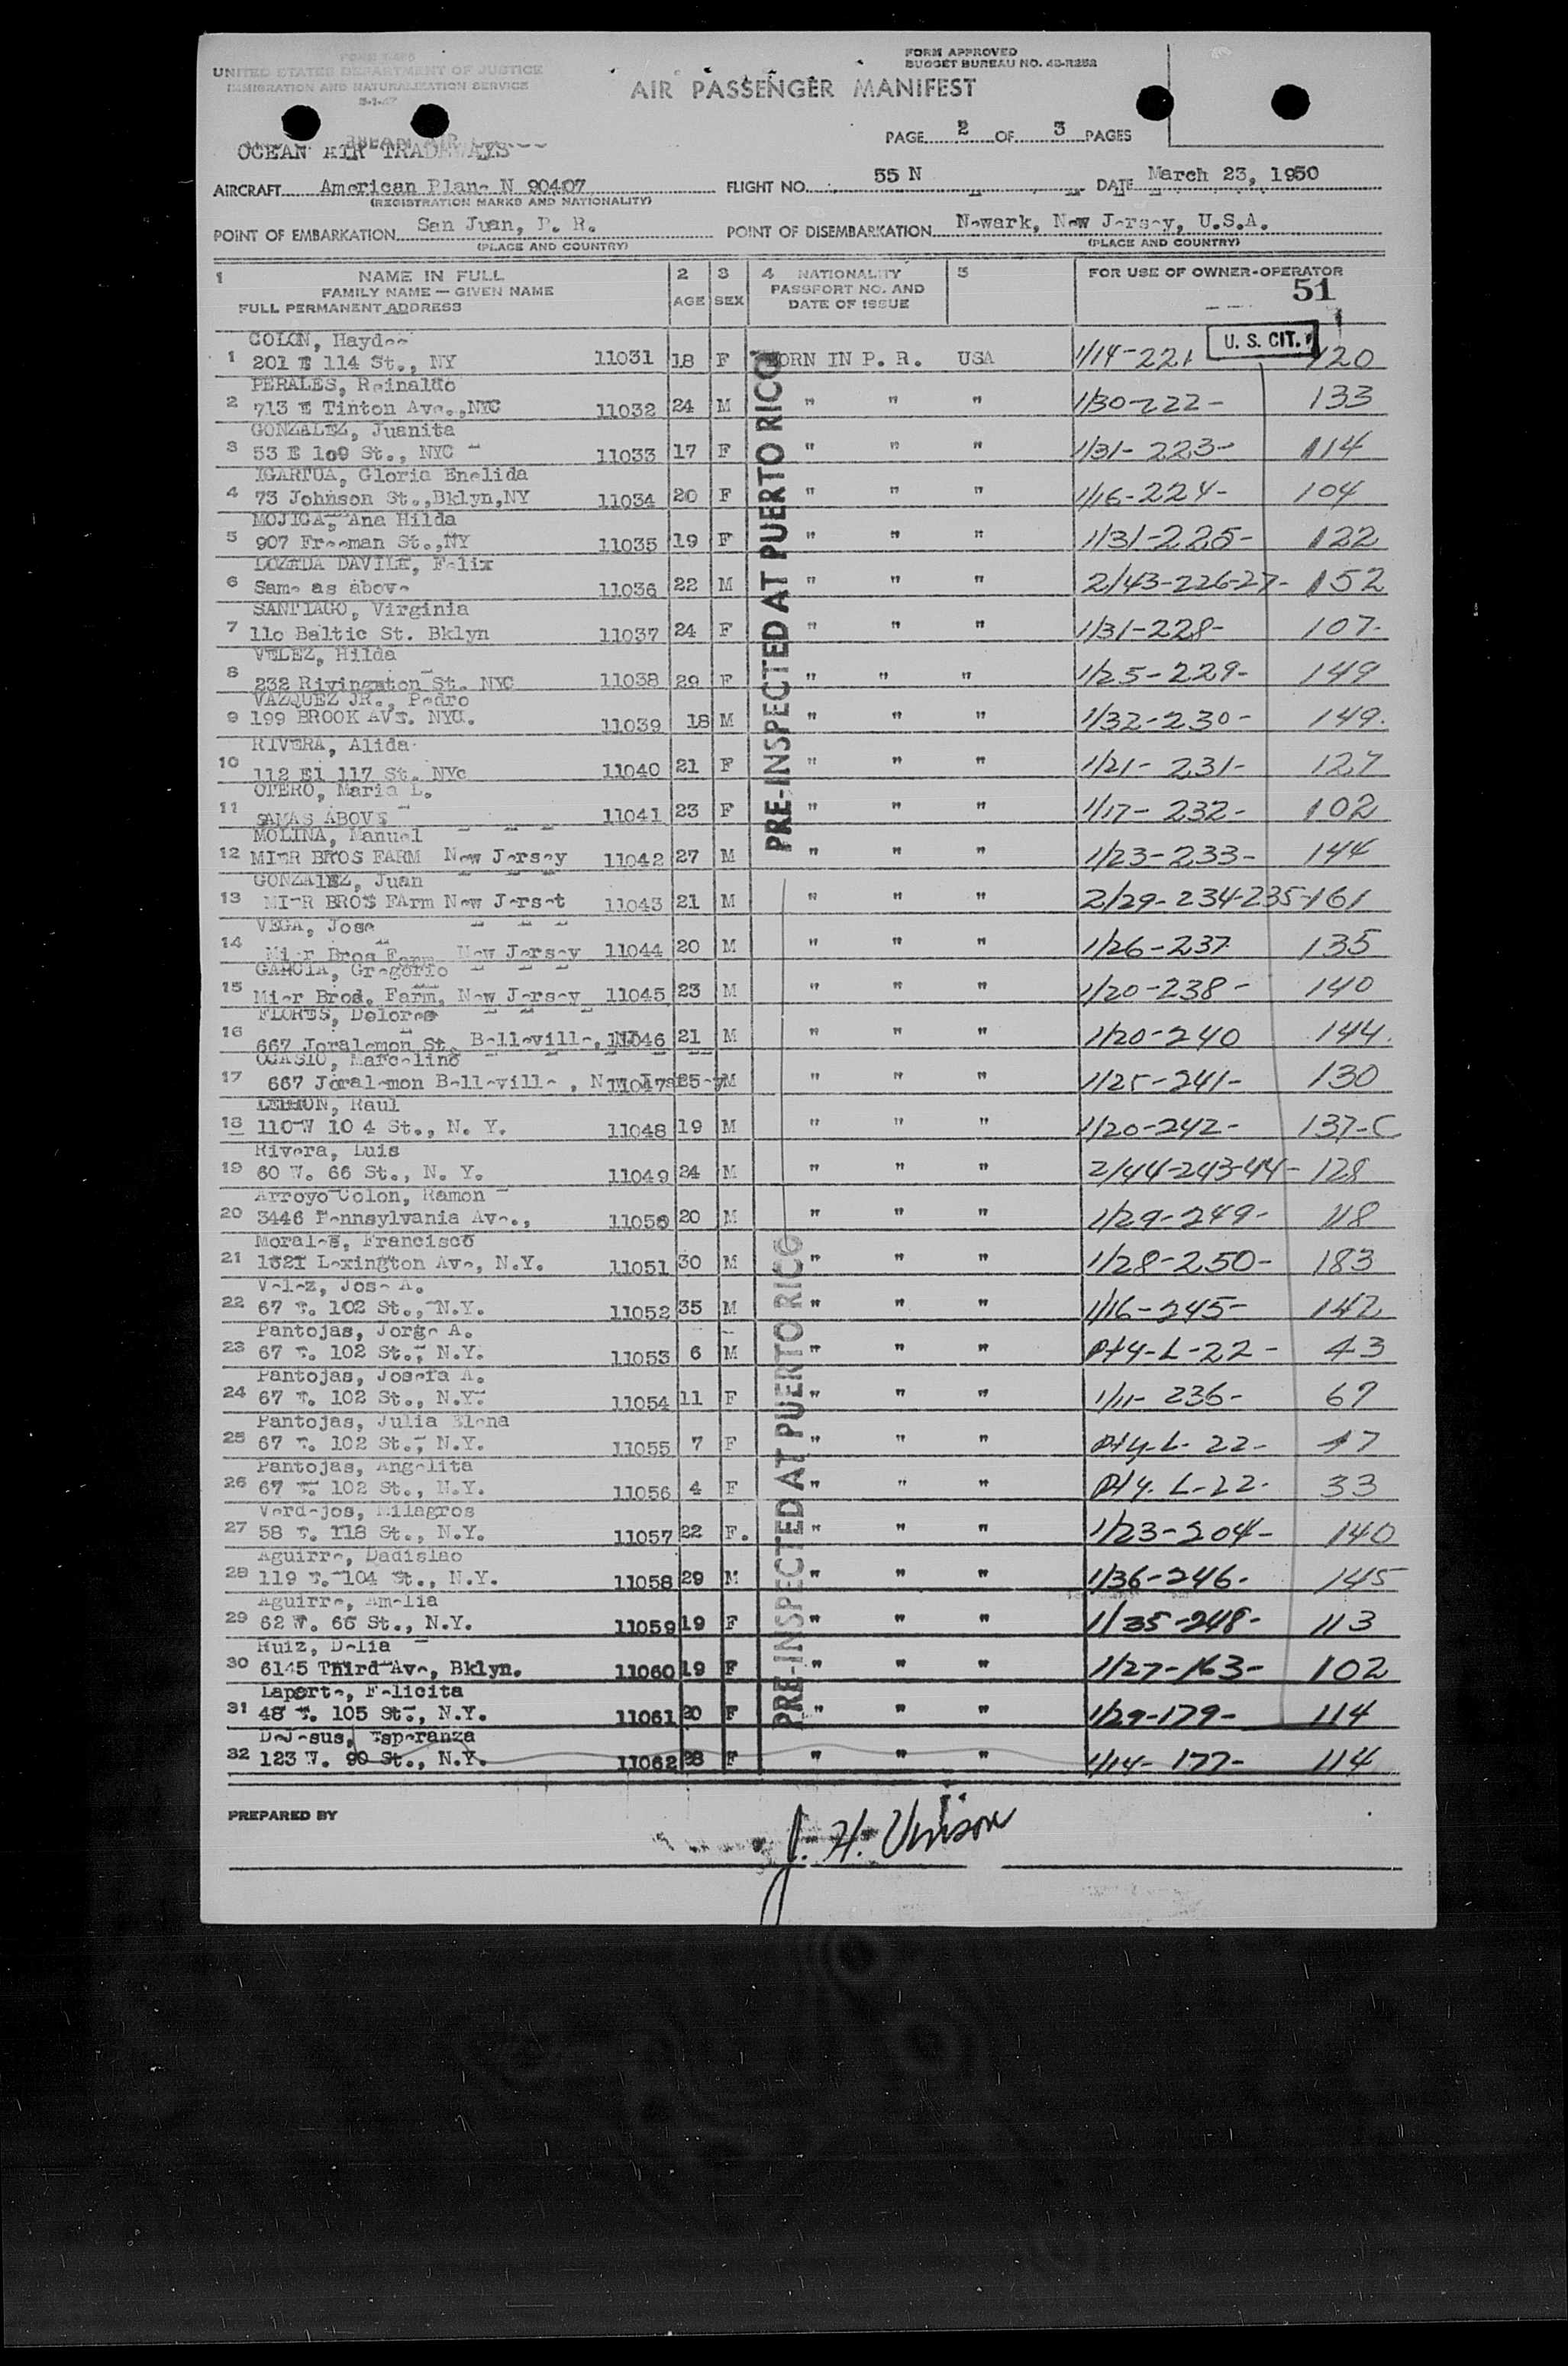 FORM I-466
UNITED STATES DEPARTMENT OF JUSTICE
IMMIGRATION AND NATURALIZATION SERVICE
FORM APPROVED
BUDGET BUREAU NO. 43-R252
AIR PASSENGER MANIFEST
PAGE 2 OF 3 PAGES
OCEAN AIR TRADEWAYS
AIRCRAFT American Plane N 90407 FLIGHT NO. 55 N DATE March 23, 1950
(REGISTRATION MARKS AND NATIONALITY)
POINT OF EMBARKATION San Juan, P. R. POINT OF DISEMBARKATION Newark, New Jersey, U.S.A.
(PLACE AND COUNTRY) (PLACE AND COUNTRY)
1 NAME IN FULL 2 3 4 NATIONALITY 5 FOR USE OF OWNER-OPERATOR
FAMILY NAME — GIVEN NAME AGE SEX PASSPORT NO. AND 51
FULL PERMANENT ADDRESS DATE OF ISSUE
U. S. CIT.
PRE-INSPECTED AT PUERTO RICO
COLON, Haydee
1 201 E 114 St., NY 11031 18 F BORN IN P. R. USA 1/14-221 120
PERALES, Reinaldo
2 713 E Tinton Ave.,NYC 11032 24 M " " " 1/30-222- 133
GONZALEZ, Juanita
3 53 E 109 St., NYC 11033 17 F " " " 1/31-223- 114
IGARTUA, Gloria Enelida
4 73 Johnson St.,Bklyn,NY 11034 20 F " " " 1/16-224- 104
MOJICA, Ana Hilda
5 907 Freeman St.,NY 11035 19 F " " " 1/31-225- 122
LOZADA DAVILE, Felix
6 Same as above 11036 22 M " " " 2/43-226-27- 152
SANTIAGO, Virginia
7 110 Baltic St. Bklyn 11037 24 F " " " 1/31-228- 107-
VELEZ, Hilda
8 232 Rivingston St. NYC 11038 29 F " " " 1/25-229- 149
VAZQUEZ JR., Pedro
9 199 BROOK AVE. NYC. 11039 18 M " " " 1/32-230- 149.
RIVERA, Alida
10 112 E1 117 St. NYc 11040 21 F " " " 1/21-231- 127
OTERO, Maria L.
11 SAMAS ABOVE 11041 23 F " " " 1/17-232- 102
MOLINA, Manuel
12 MIER BROS FARM New Jersey 11042 27 M " " " 1/23-233- 144
GONZALEZ, Juan
13 MIER BROS FArm New Jerset 11043 21 M " " " 2/29-234-235-161
VEGA, Jose
14 Mier Bros Farm New Jersey 11044 20 M " " " 1/26-237 135
GARCIA, Gregorio
15 Mier Bros. Farm, New Jersey 11045 23 M " " " 1/20-238- 140
FLORES, Delores
16 667 Joralemon St. Belleville, NJ 11046 21 M " " " 1/20-240 144.
OCASIO, Marcelino
17 667 Joralemon Belleville, New Jersey 11047 25 M " " " 1/25-241- 130
LEBRON, Raul
18 110 W 10 4 St., N. Y. 11048 19 M " " " 1/20-242- 137-C
Rivera, Luis
19 60 W. 66 St., N. Y. 11049 24 M " " " 2/44-243-44- 128
Arroyo Colon, Ramon
20 3446 Pennsylvania Ave., 11050 20 M " " " 1/29-249- 118
Morales, Francisco
21 1621 Lexington Ave, N.Y. 11051 30 M " " " 1/28-250- 183
Velez, Jose A.
22 67 E. 102 St., N.Y. 11052 35 M " " " 1/16-245- 142
Pantojas, Jorge A.
23 67 E. 102 St., N.Y. 11053 6 M " " " Pty-L-22- 43
Pantojas, Josefa A.
24 67 E. 102 St., N.Y. 11054 11 F " " " 1/11-236- 69
Pantojas, Julia Elena
25 67 E. 102 St., N.Y. 11055 7 F " " " Pty-L-22-
Pantojas, Angelita
26 67 E. 102 St., N.Y. 11056 4 F " " " Pty. L-22- 33
Verdejos, Milagros
27 58 E. 118 St., N.Y. 11057 22 F. " " " 1/23-204- 140
Aguirre, Dadislao
28 119 E. 104 St., N.Y. 11058 29 M " " " 1/36-246- 145
Aguirre, Amelia
29 62 W. 66 St., N.Y. 11059 19 F " " " 1/35-248- 113
Ruiz, Delia
30 6145 Third Ave, Bklyn. 11060 19 F " " " 1/27-163- 102
Laporte, Felicita
31 48 E. 105 St., N.Y. 11061 20 F " " " 1/29-179- 114
DeJesus, Esperanza
32 123 W. 90 St., N.Y. 11062 28 F " " " 1/14-177- 114
PRE-INSPECTED AT PUERTO RICO
PREPARED BY J. H. Vinson